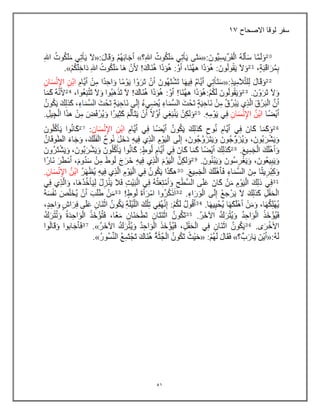 سفر لوقا الاصحاح ١٧
20وَلَمَّا سَأَلَهُ الْفَرِّيسِيُّونَ:«مَتَى يَأْتِي مَلَكُوتُ اللهِ؟» أَجَابَهُمْ وَقَالَ:«لاَ يَأْتِي مَلَكُوتُ اللهِ
بِمُرَاقَبَةٍ، 21وَلاَ يَقُولُونَ: هُوَذَا ههُنَا، أَوْ: هُوَذَا هُنَاكَ! لأَنْ هَا مَلَكُوتُ اللهِ دَاخِلَكُمْ».
22وَقَالَ لِلتَّلاَمِيذِ:«سَتَأْتِي أَيَّامٌ فِيهَا تَشْتَهُونَ أَنْ تَرَوْا يَوْمًا وَاحِدًا مِنْ أَيَّامِ ابْنِ الإِنْسَانِ
وَلاَ تَرَوْنَ. 23وَيَقُولُونَ لَكُمْ:هُوَذَا ههُنَا! أَوْ: هُوَذَا هُنَاكَ! لاَ تَذْهَبُوا وَلاَ تَتْبَعُوا، 24لأَنَّهُ كَمَا
أَنَّ الْبَرْقَ الَّذِي يَبْرُقُ مِنْ نَاحِيَةٍ تَحْتَ السَّمَاءِ يُضِيءُ إِلَى نَاحِيَةٍ تَحْتَ السَّمَاءِ، كَذلِكَ يَكُونُ
أَيْضًا ابْنُ الإِنْسَانِ فِي يَوْمِهِ. 25وَلكِنْ يَنْبَغِي أَوَّلاً أَنْ يَتَأَلَّمَ كَثِيرًا وَيُرْفَضَ مِنْ هذَا الْجِيلِ.
26وَكَمَا كَانَ فِي أَيَّامِ نُوحٍ كَذلِكَ يَكُونُ أَيْضًا فِي أَيَّامِ ابْنِ الإِنْسَانِ: 27كَانُوا يَأْكُلُونَ
وَيَشْرَبُونَ، وَيُزَوِّجُونَ وَيَتَزَوَّجُونَ، إِلَى الْيَوْمِ الَّذِي فِيهِ دَخَلَ نُوحٌ الْفُلْكَ، وَجَاءَ الطُّوفَانُ
وَأَهْلَكَ الْجَمِيعَ. 28كَذلِكَ أَيْضًا كَمَا كَانَ فِي أَيَّامِ لُوطٍ: كَانُوا يَأْكُلُونَ وَيَشْرَبُونَ، وَيَشْتَرُونَ
وَيَبِيعُونَ، وَيَغْرِسُونَ وَيَبْنُونَ. 29وَلكِنَّ الْيَوْمَ الَّذِي فِيهِ خَرَجَ لُوطٌ مِنْ سَدُومَ، أَمْطَرَ نَارًا
وَكِبْرِيتًا مِنَ السَّمَاءِ فَأَهْلَكَ الْجَمِيعَ. 30هكَذَا يَكُونُ فِي الْيَوْمِ الَّذِي فِيهِ يُظْهَرُ ابْنُ الإِنْسَانِ.
31فِي ذلِكَ الْيَوْمِ مَنْ كَانَ عَلَى السَّطْحِ وَأَمْتِعَتُهُ فِي الْبَيْتِ فَلاَ يَنْزِلْ لِيَأْخُذَهَا، وَالَّذِي فِي
الْحَقْلِ كَذلِكَ لاَ يَرْجِعْ إِلَى الْوَرَاءِ. 32اُذْكُرُوا امْرَأَةَ لُوطٍ! 33مَنْ طَلَبَ أَنْ يُخَلِّصَ نَفْسَهُ
يُهْلِكُهَا، وَمَنْ أَهْلَكَهَا يُحْيِيهَا. 34أَقُولُ لَكُمْ: إِنَّهُ فِي تِلْكَ اللَّيْلَةِ يَكُونُ اثْنَانِ عَلَى فِرَاشٍ وَاحِدٍ،
فَيُؤْخَذُ الْوَاحِدُ وَيُتْرَكُ الآخَرُ. 35تَكُونُ اثْنَتَانِ تَطْحَنَانِ مَعًا، فَتُؤْخَذُ الْوَاحِدَةُ وَتُتْرَكُ
الأُخْرَى. 36يَكُونُ اثْنَانِ فِي الْحَقْلِ، فَيُؤْخَذُ الْوَاحِدُ وَيُتْرَكُ الآخَرُ». 37فَأَجَابوا وَقَالُوا
لَهُ:«أَيْنَ يَارَبُّ؟» فَقَالَ لَهُمْ: «حَيْثُ تَكُونُ الْجُثَّةُ هُنَاكَ تَجْتَمِعُ النُّسُورُ».
٥١